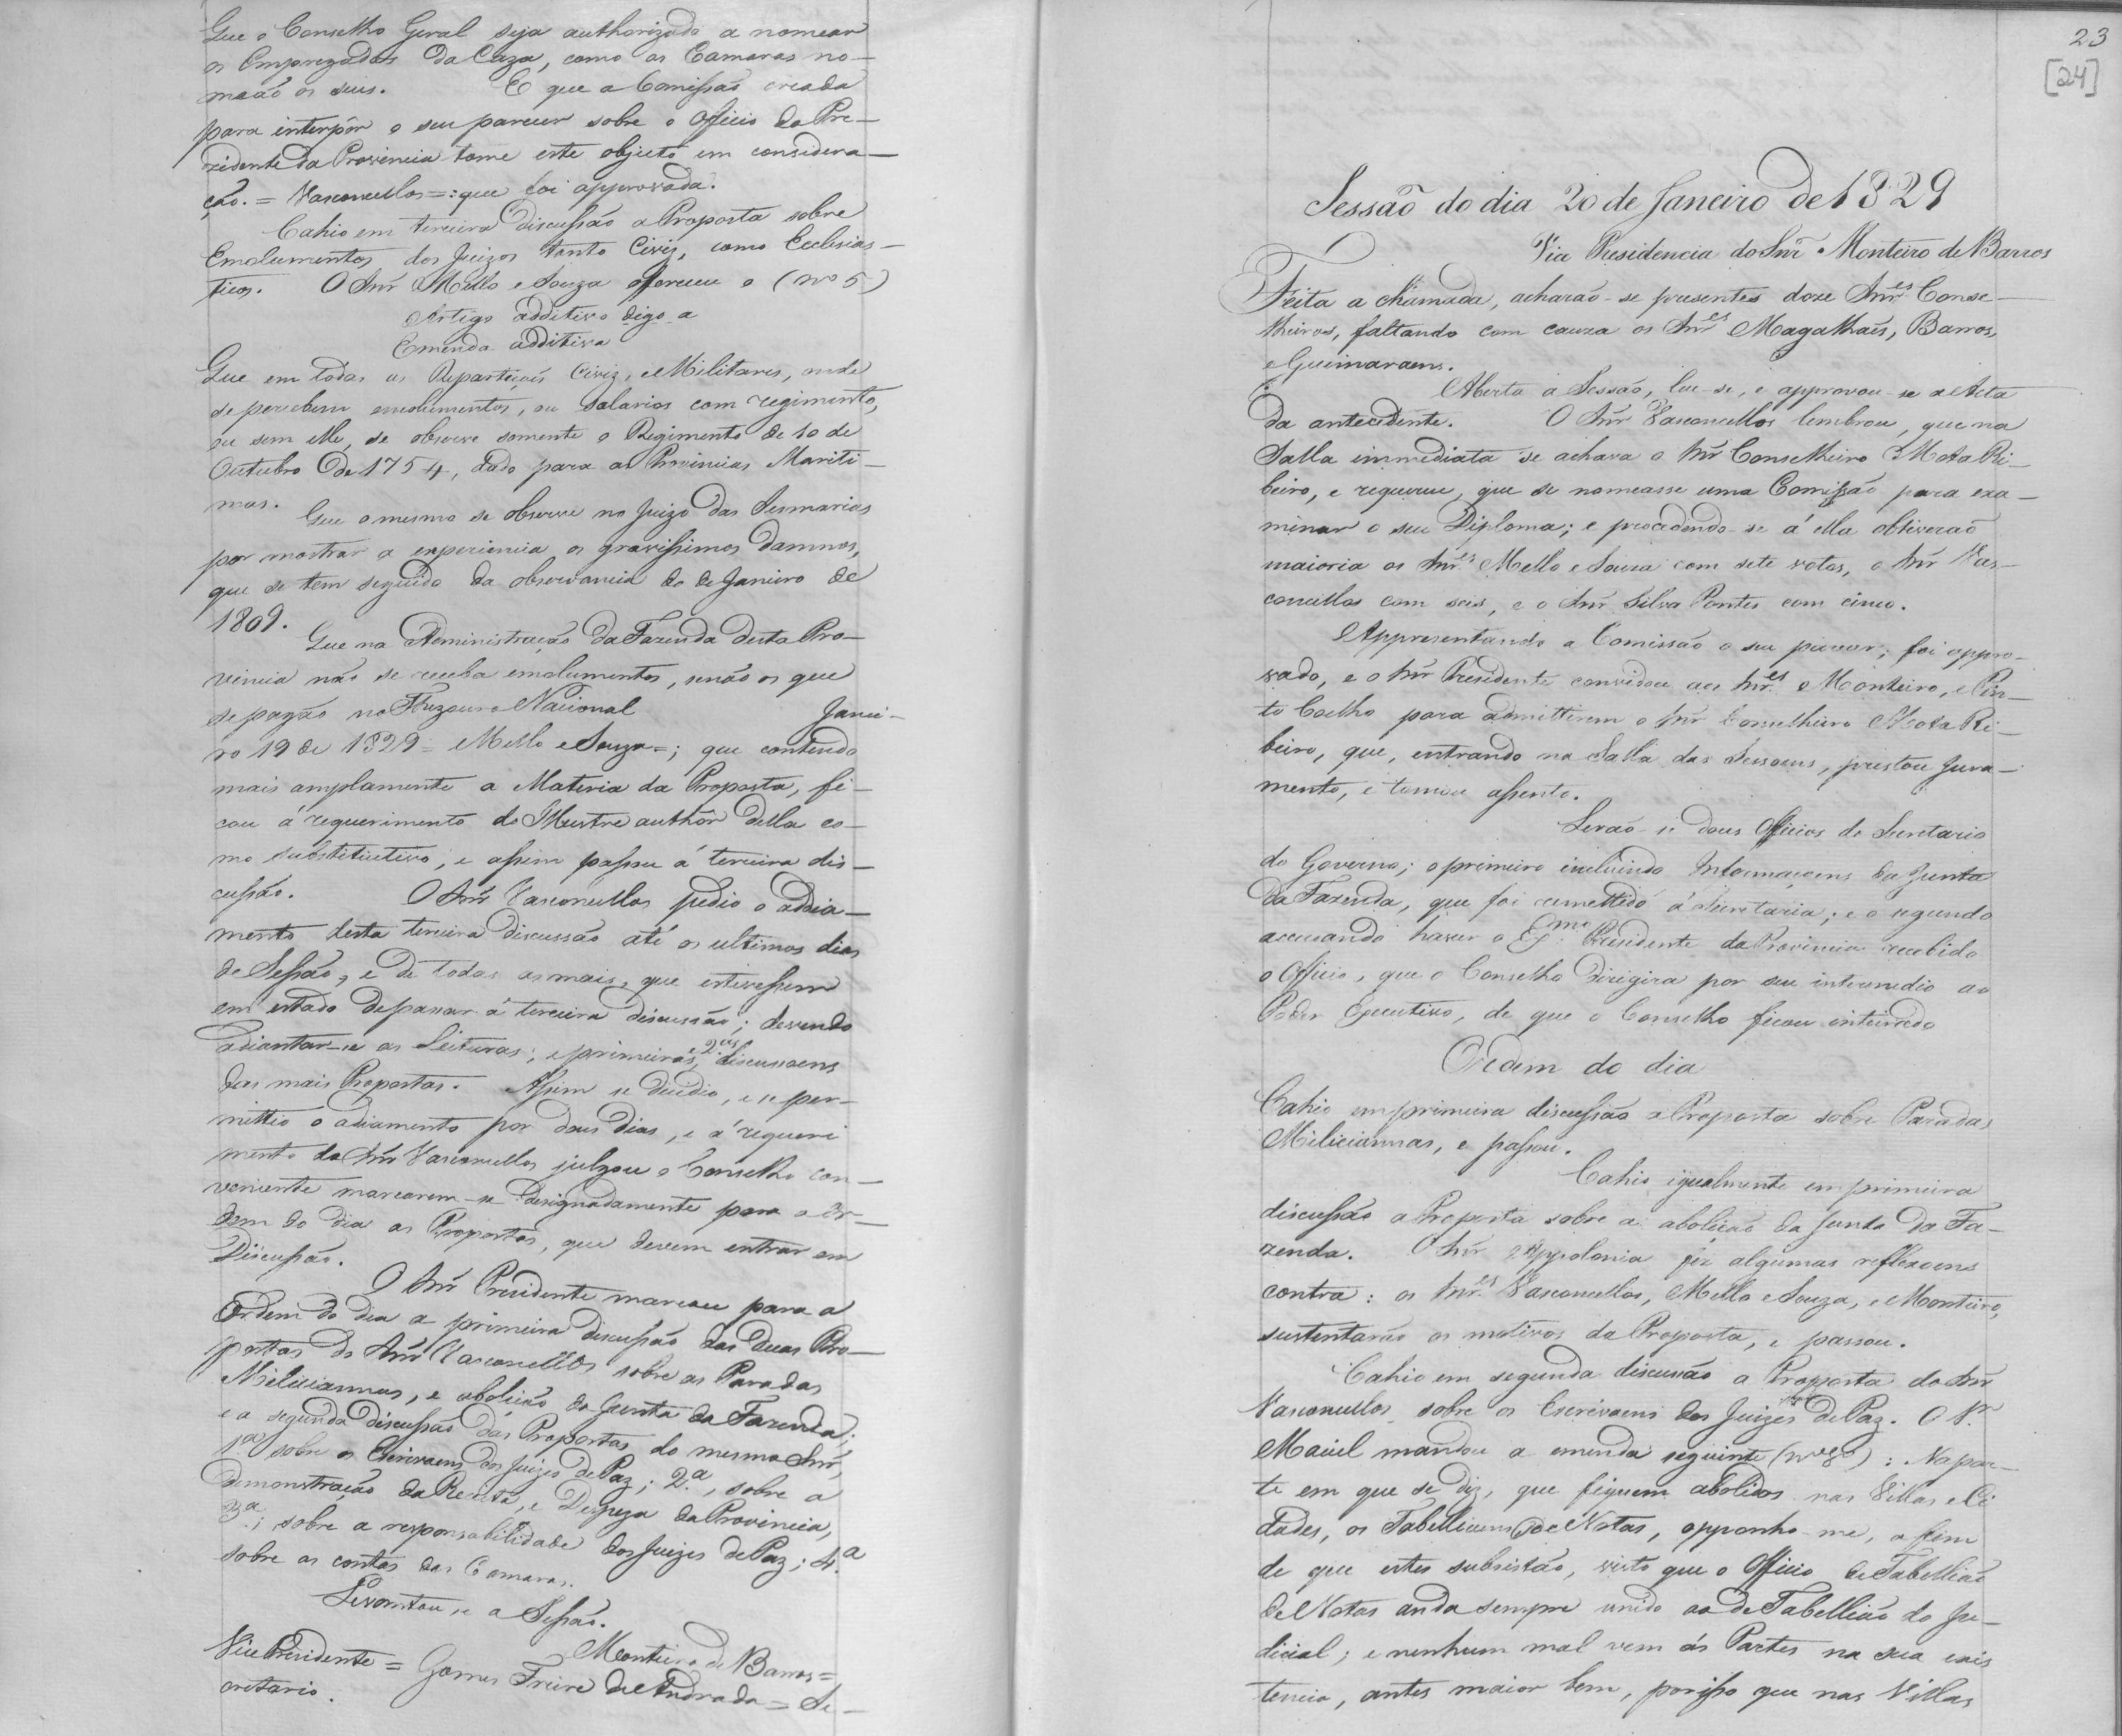 Que o Conselho Geral seja authorizado a nomear
os Empregados da Caza, como as Camaras no-
meão os seus. E que a Comissão creada
para interpôr o seu parecer sobre o Officio do Pre-
zidente da Provincia tome este objecto em considera-
ção. = Vasconcellos =: que foi approvada.
Cahio em terceira Discussão a Proposta sobre
Emolumentos dos Juizos tanto Civis, como Ecclesias-
ticos. O Snr Mello e Souza offereceu o (nº 5)
Artigo additivo digo a
Emenda additiva
Que em todas as Repartiçois Civis, e Militares, onde
se percebem emolumentos, ou Salarios com regimento,
ou sem elle, se observe somente o Regimento de 10 de
Outubro de 1754, dado para as Provincias Mariti-
mas. Que o mesmo se observe no Juizo das Sesmarias
por mostrar a experiencia os gravissimos damnos,
que se tem seguido da observancia do de Janeiro de
1809.
Que na Administração da Fazenda desta Pro-
vincia não se receba emolumentos, senão os que
se pagão no Thezouro Nacional Janei-
ro 19 de 1829 = Mello e Souza =; que contendo
mais amplamente a Materia da Proposta, fi-
cou á requerimento do Illustre authôr della co-
mo substitutivo, e assim passou á terceira dis-
cussão. O Snr Vasconcellos pedio o addia-
mento desta terceira discussão até os ultimos dias
de Sessão, e de todas as mais, que estivessem
em estado de passar á terceira discussão; devendo
adiantar-se as Leituras, e primeiras, e 2as discussoens
das mais Propostas. Assim se decidio, e se per-
mittio o adiamento por dous dias, e á requeri
mento do Snr Vasconcellos julgou o Conselho con-
veniente marcarem-se designadamente para a Or-
dem do dia as Propostas, que devem entrar em
Discussão.
O Snr Presidente marcou para a
Ordem do dia a primeira discussão das duas Pro-
postas do Snr Vasconcellos sobre as Paradas
Miliciannas, e abolição da Junta da Fazenda;
e a segunda discussão das Propostas do mesmo Snr,
1ª sobre os Escrivaens dos Juizes de Paz; 2.ª, sobre a
demonstração da Receita, e Despeza da Provincia,
3ª; sobre a responsabilidade dos Juizes de Paz; 4.ª
sobre as contas das Camaras.
Levantou-se a Sessão.
Monteiro de Barros =
Vice Presidente = Gomes Freire de Andrada = Se-
cretario.
23
[24]
Sessão do dia 20 de Janeiro de 1829
Via Presidencia do Snr Monteiro de Barros
Feita a chamada, acharão-se presentes doze Snr.es Conse-
lheiros, faltando com cauza os Snr.es Magalhães, Barros,
e Guimaraens.
Aberta a Sessão, leu-se, e approvou-se a Acta
da antecedente. O Snr Vasconcellos lembrou, que na
Salla immediata se achava o Snr Conselheiro Mota Ri-
beiro, e requereu, que se nomeasse uma Comissão para exa-
minar o seu Diploma; e procedendo-se á ella obtiverão
maioria os Snr.es Mello e Souza com sete votos, o Snr Vas-
concellos com seis, e o Snr Silva Pontes com cinco.
Appresentando a Comissão o seu parecer; foi appro-
vado, e o Snr Presidente convidou aos Snr.es Monteiro, e Pin-
to Coelho para admittirem o Snr Conselheiro Mota Ri-
beiro, que, entrando na Salla das Sessoens, prestou Jura-
mento, e tomou assento.
Lerão-se dous Officios do Secretario
do Governo; o primeiro incluindo Informaçoens da Junta
da Fazenda, que foi remettido á Secretaria; e o segundo
accusando haver o Exmo Presidente da Provincia recebido
o Officio, que o Conselho dirigira por seu intermedio ao
Poder Executivo, de que o Conselho ficou inteirado
Ordem do dia
Cahio em primeira discussão a Proposta sobre Paradas
Miliciannas, e passou.
Cahio igualmente em primeira
discussão a Proposta sobre a abolição da Junta da Fa-
zenda. O Snr Appolonia fez algumas reflexoens
contra: os Snr.es Vasconcellos, Mello e Souza, e Monteiro,
sustentarão os motivos da Proposta, e passou.
Cahio em segunda discussão a Proposta do Snr
Vasconcellos sobre os Escrivaens dos Juizes de Paz. O Sr
Maciel mandou a emenda seguinte (nº 8): Na par-
te em que se diz, que fiquem abolidos nas Villas e Ci
dades, os Tabelliaens de Notas, opponho-me, a fim
de que estes subsistão, visto que o Officio de Tabellião
de Notas anda sempre unido ao de Tabellião do Ju-
dicial; e nenhum mal vem ás Partes na sua exis
tencia, antes maior bem, por isso que nas Villas